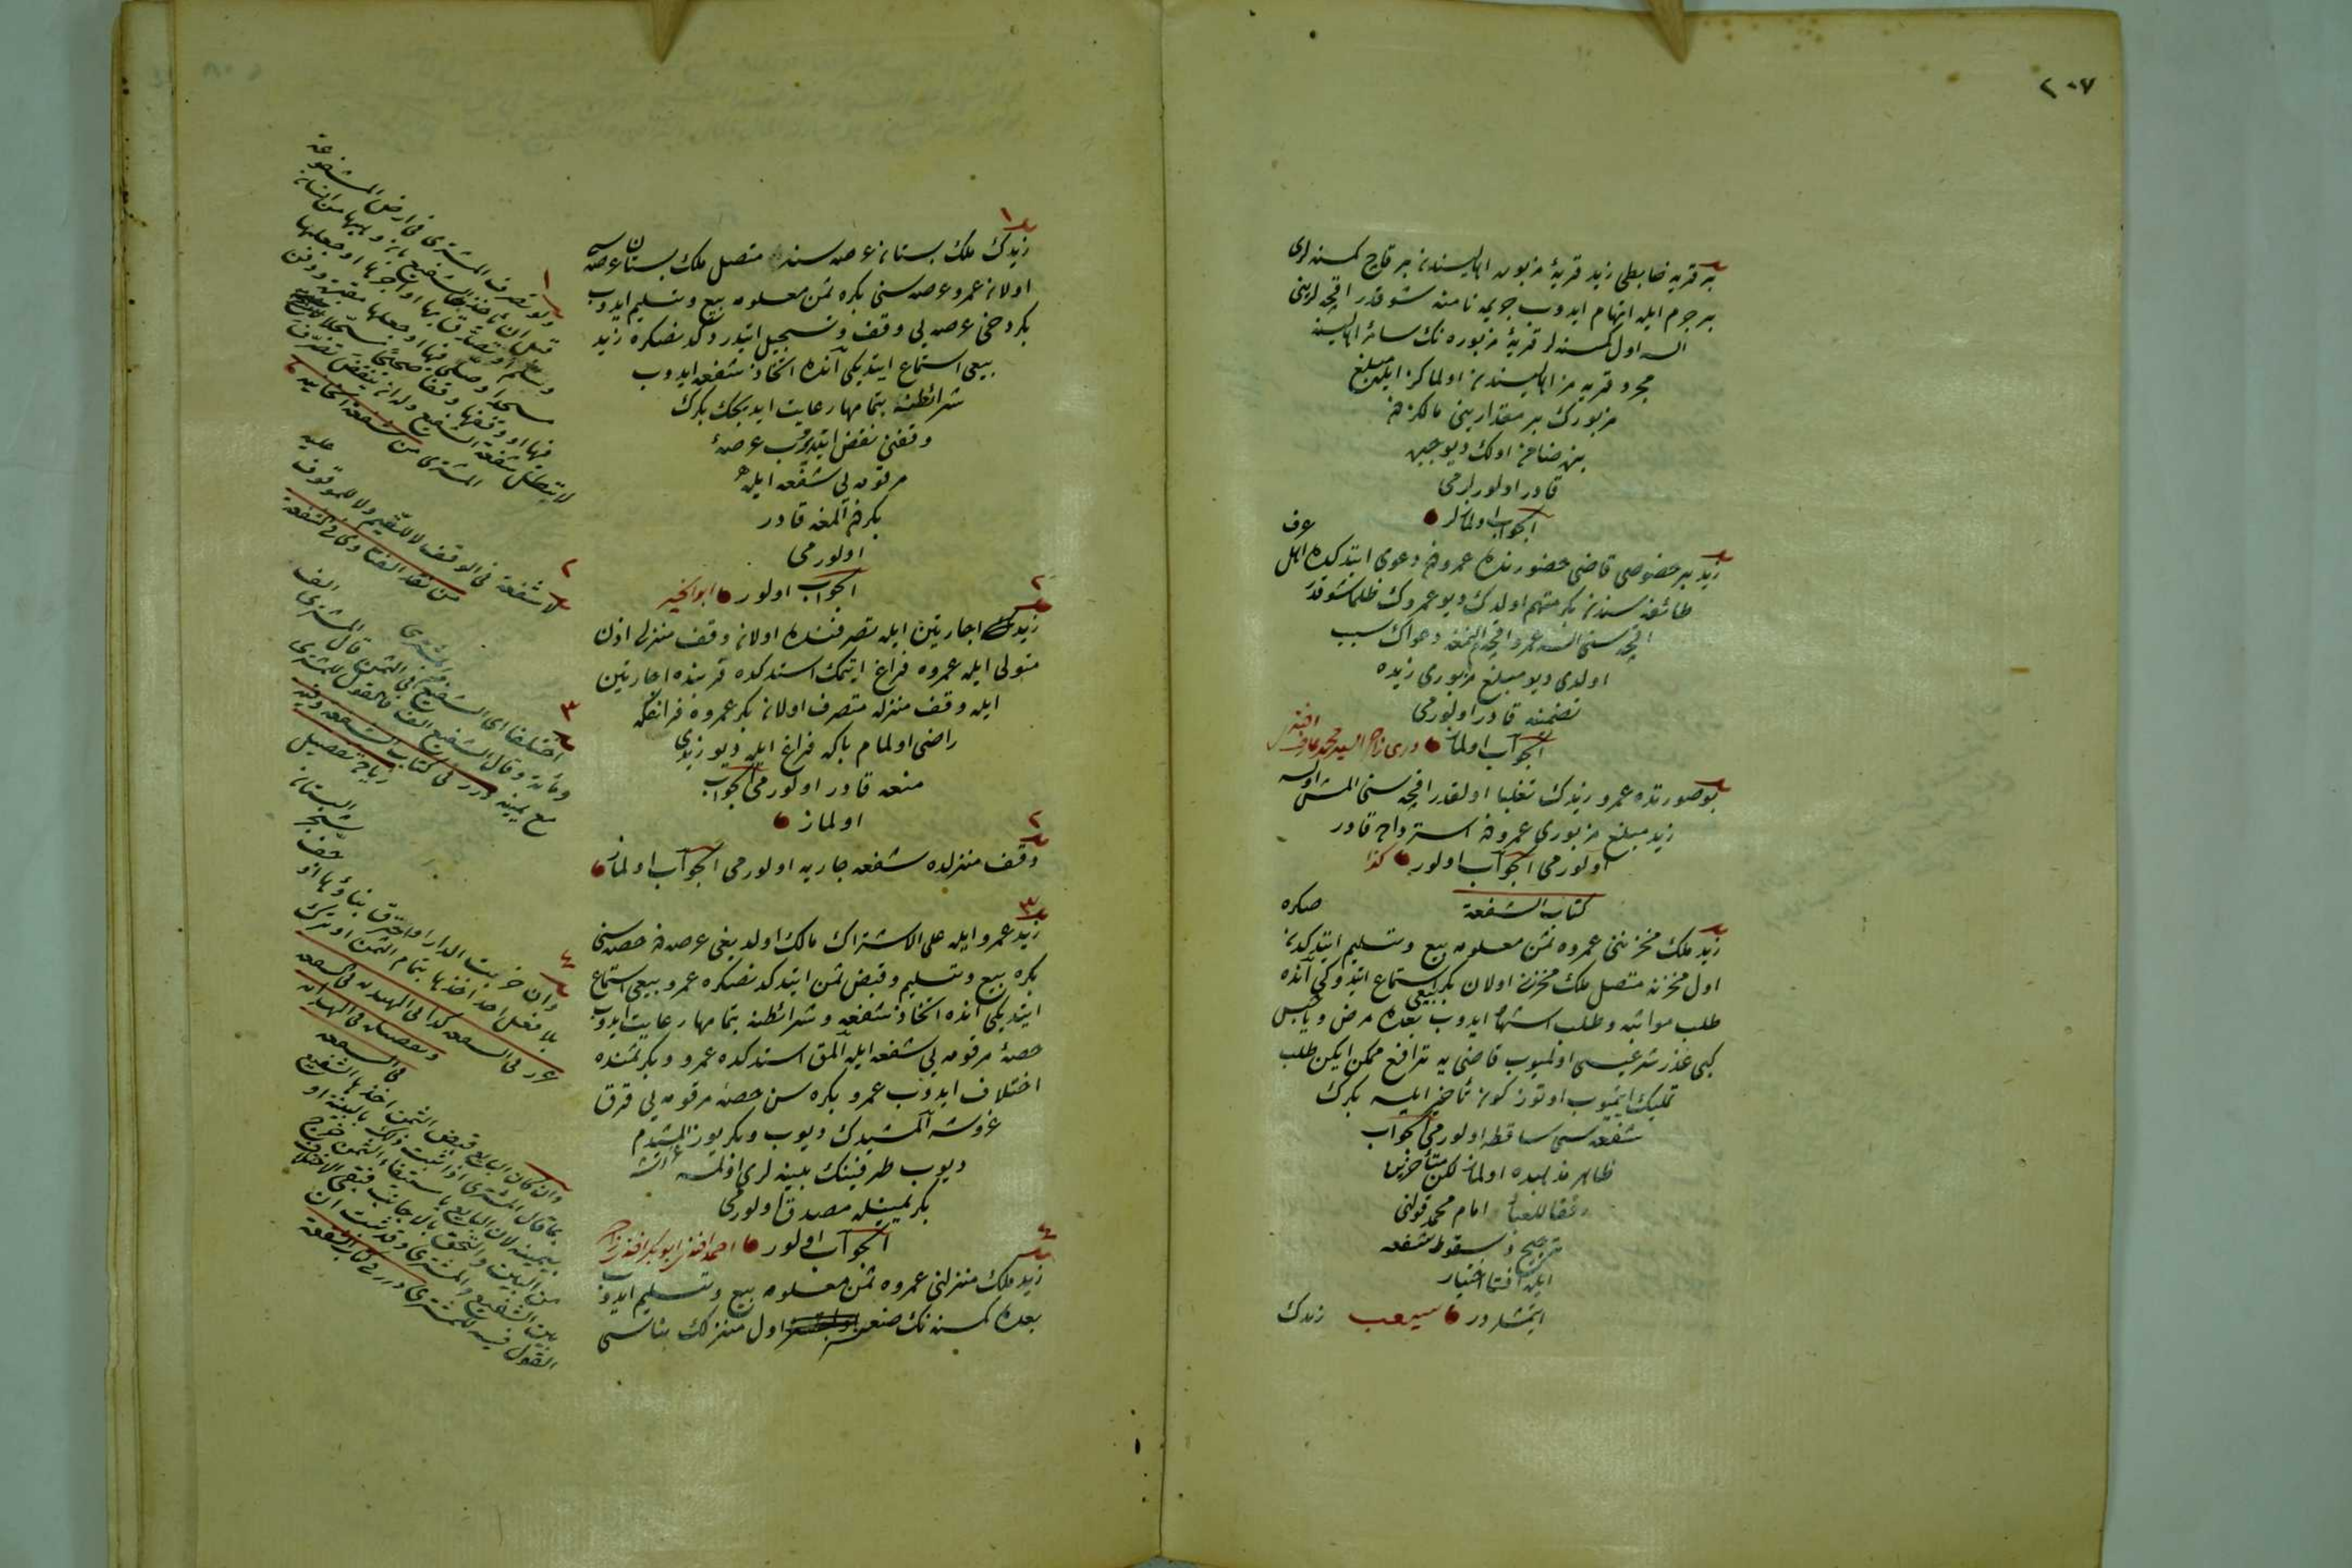 ٢٠٧
بر قریه ضابطی زید قریهٔ مزبوره اهالیسندن بر قاچ کمسنه لری
بر جرم ایله اتهام ایدوب جریمه نامنه شو قدر اقچه لرینی
السه اول کمسنه لر قریهٔ مزبوره نك سائر اهالیسنه
مجرد قریه مز اهالیسندن اولماکز ایله مبلغ
مزبورك بر مقدارینی مالکزدن
بزه ضامن اولك دیو جبره
قادر اولورلر می
الجواب اولمازلر
زید بر خصوصی قاضی حضورنده عمرودن دعوی ایتدکده اهل عرف
طائفه سندن بکر متهم اولدك دیو عمروك ظلما شو قدر
اقچه سنی السه عمرو اقچه المغه دعواك سبب
اولدی دیو مبلغ مزبوری زیده
تضمینه قادر اولور می
الجواب اولماز دری زاده السید محمد عارف افندی
بو صورتده عمرو زیدك تغلبا اولقدر اقچه سنی المش اولسه
زید مبلغ مزبوری عمرودن استرداده قادر
اولور می الجواب اولور كذا
كتاب الشفعة
زید ملك مخزننی عمروه ثمن معلومه بیع و تسلیم ایتدکدن صکره
اول مخزنه متصل ملك مخزنی اولان بکر بیعی استماع ایتدوکی آنده
طلب مواثبه و طلب اشهاد ایدوب بعده مرض و یا حبس
کبی عذر شرعیسی اولمیوب قاضی یه ترافع ممکن ایکن طلب
تملیك ایتمیوب اوتوز کون تأخیر ایلسه بکرك
شفعه سی ساقطه اولور می الجواب
ظاهر مذهبده اولماز لکن متأخرین
رفقا للعباد امام محمد قولنی
ترجیح و سقوط شفعه
ایله افتا اختیار
ایتمشلردر
زیدك
زیدك ملك بستانی عرصه سنه متصل ملك بستان عرصه سی
اولان عمرو عرصه سنی بکره ثمن معلومه بیع و تسلیم ایدوب
بکر دخی عرصه یی وقف و تسجیل ایتدردکدنصکره زید
بیعی استماع ایتدیکی آنده اتخاذ شفعه ایدوب
شرائطنه بتمامها رعایت ایدیجك بکرك
وقفنی نقض ایتدیروب عرصهٔ
مرقومه یی شفعه ایله
بکردن المغه قادر
اولور می
الجواب اولور ابو الخیر
زید اجارتین ایله تصرفنده اولان وقف منزلی اذن
متولی ایله عمروه فراغ ایتمك استدکده قربنده اجارتین
ایله وقف منزله متصرف اولان بکر عمروه فراغکه
راضی اولمام بکا فراغ ایله دیو زیدی
منعه قادر اولور می الجواب
اولماز
وقف منزلده شفعه جاریه اولور می الجواب اولماز
زید عمرو ایله علی الاشتراك مالك اولدیغی عرصه دن حصه سنی
بکره بیع و تسلیم و قبض ثمن ایتدکدنصکره عمرو بیعی استماع
ایتدیکی آنده اتخاذ شفعه و شرائطنه بتمامها رعایت ایدوب
حصهٔ مرقومه یی شفعه ایله المق استدکده عمرو و بکر ثمنده
اختلاف ایدوب عمرو بکره سن حصهٔ مرقومه یی قرق
غروشه المشیدك دیوب و بکر یوز المشیدم
دیوب طرفینك بینه لری اولمسه
بکر یمینله مصدق اولور می
الجواب اولور احمد افندی ابو بکر افندی زاده
زید ملك منزلنی عمروه ثمن معلومه بیع و تسلیم ایدوب
بعده کمسنه نك صنعی اول منزلك بناسی
١
ولو تصرف المشتری فی ارض المشفوعة
قبل ان یأخذ الشفیع بان وهبها من انسان
وسلم او تصدق بها او اجرها او جعلها
مسجدا وصلی فیها او جعلها مقبرة ودفن
فیها او وقفها وقفا صحیحا مسجلا
لا یبطل شفعة الشفیع وله ان ینقض تصرف
المشتری من شفعة الخانیه
٢
لا شفعة فی الوقف لا للقیم ولا للموقوف علیه
من نقد الفتاوی فی الشفعة
٣
اختلفا ای الشفیع والمشتری فی الثمن قال المشتری الف
ومائة وقال الشفیع الف فالقول للمشتری
مع یمینه درر فی کتاب الشفعة وفیه
زیادة تفصیل
٤
وان خربت الدار او احترق بناؤها او جف شجر البستان
بلا فعل احد اخذها بتمام الثمن او ترك
غرر فی الشفعه كذا فی الهدایه فی الشفعه
وتفصیله فی الهدایه
فی الشفعه
وان كان البایع قبض الثمن اخذها الشفیع
بما قال المشتری اذا ثبت ذلك بالبینة او
بیمینه لان البایع باستیفاء الثمن خرج
من البین والتحق بالاجانب فبقی الاختلاف
بین الشفیع والمشتری وقد ثبت ان
القول فیه للمشتری درر فی كتاب الشفعة